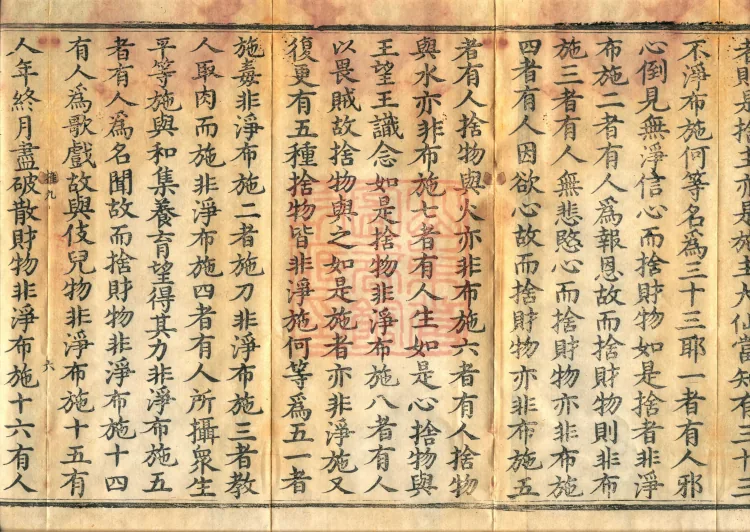 大仙當知
不淨布施何等名爲三十三耶一者有人邪
心倒見無淨信心而捨財物如是捨者非淨
布施二者有人爲報恩故而捨財物則非布
施三者有人無悲愍心而捨財物亦非布施
四者有人因欲心故而捨財物亦非布施五
者有人捨物與火亦非布施六者有人捨物
與水亦非布施七者有人生如是心捨物與
王望王識念如是捨物非淨布施八者有人
以畏賊故捨物與之如是施者亦非淨施又
復更有五種捨物皆非淨施何等爲五一者
施毒非淨布施二者施刀非淨布施三者教
人取肉而施非淨布施四者有人所攝衆生
平等施與和集養育望得其力非淨布施五
者有人爲名聞故而捨財物非淨布施十四
有人爲歌戲故與伎兒物非淨布施十五有
九 六
人年終月盡破散財物非淨布施十六有人